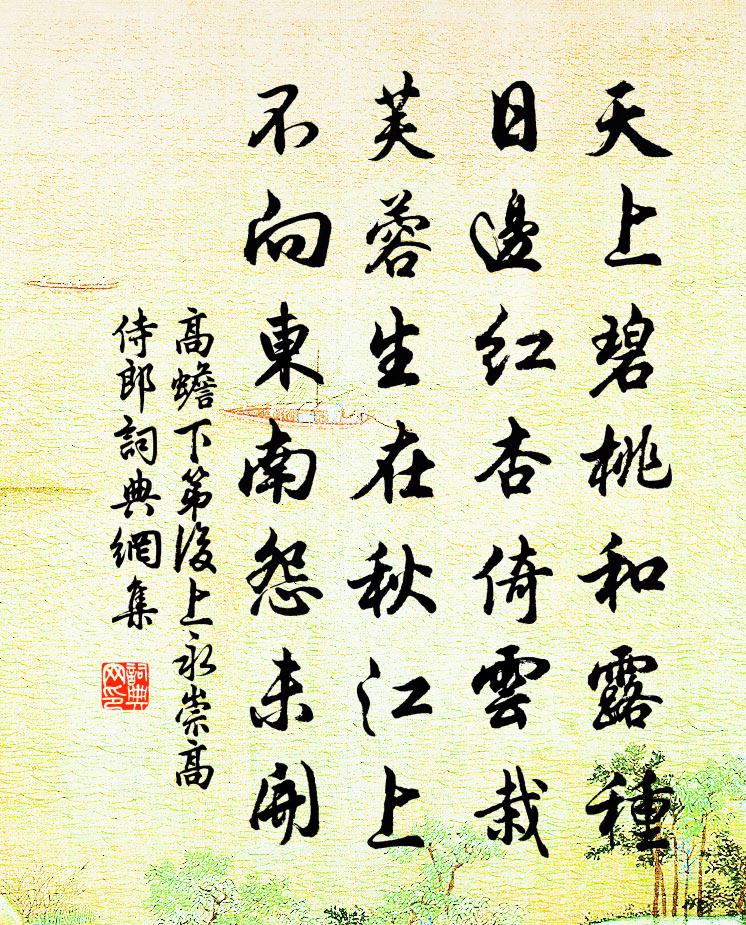 天上碧桃和露種
日邊紅杏倚雲栽
芙蓉生在秋江上
不向東南怨未開
高蟾下第後上永崇高
侍郎詞典網集
詞典網印